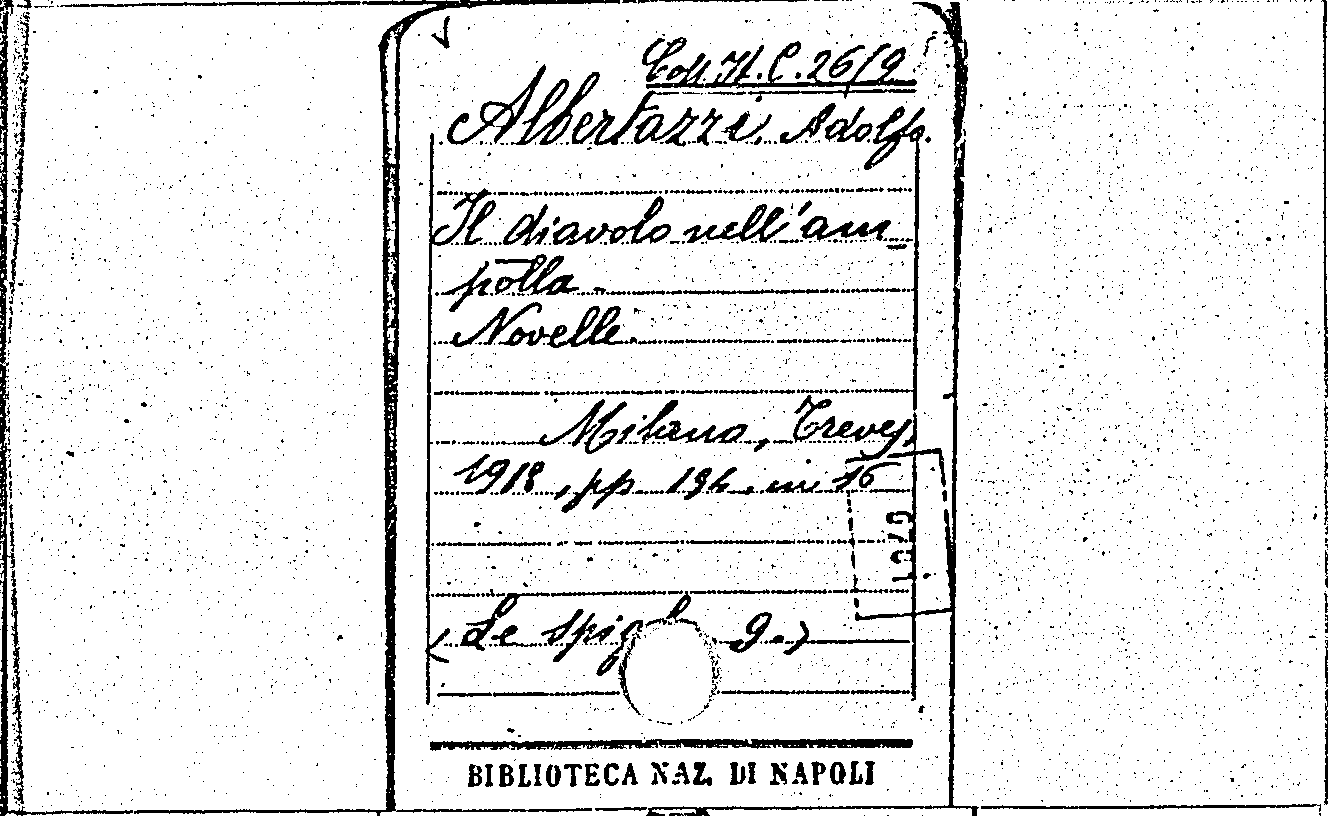 Coll. It. C. 26/9
Albertazzi, Adolfo.
Il diavolo nell'am-
polla.
Novelle.
Milano, Treves,
1918, pp. 192. in 16
(Le 9.)
BIBLIOTECA NAZ. DI NAPOLI